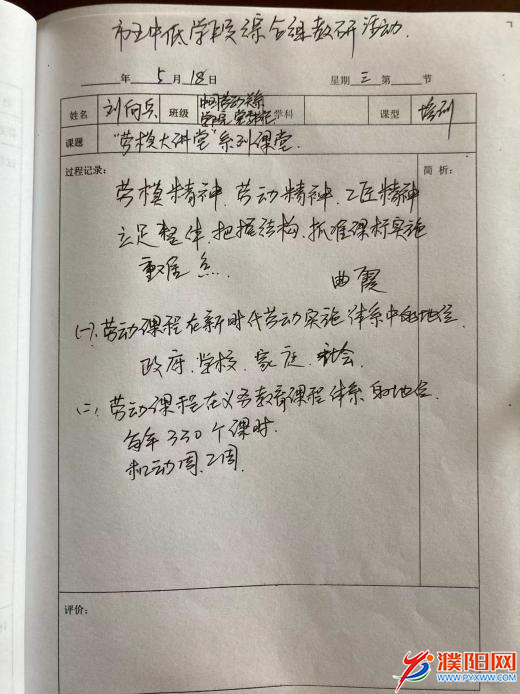 市直中低学段综合课教研活动.
年 5 月 18 日 星期 三 第 节
姓名 刘向兵 班级 中国劳动关系学院党委书记 学科 课型 培训
课题 "劳模大讲堂"系列课堂.
过程记录: 简 析:
劳模精神、劳动精神、工匠精神
立足整体、把握结构、抓准课标实施
重 焦. 曲霞
(一)、劳动课程在新时代劳动实施体系中的地位.
政府、学校、家庭、社会.
(二)、劳动课程在义务教育课程体系的地位.
每年 330个课时.
机动周、2周.
评价:
濮阳网
WWW.PYXWW.COM